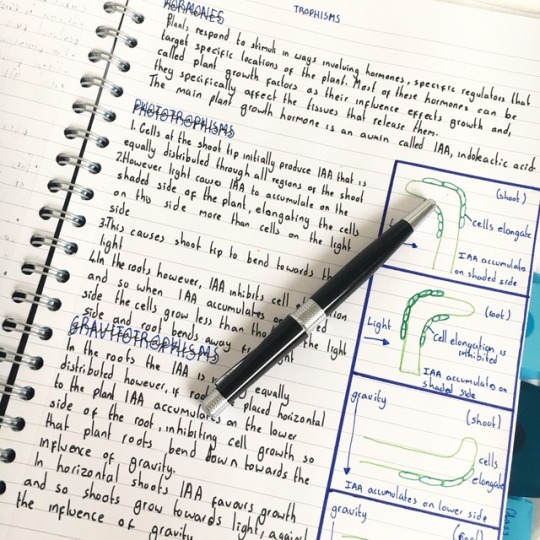 TROPHISMS
HORMONES
Plants respond to stimuli in ways involving hormones, specific regulators that
target specific locations of the plant. Most of these hormones can be
called plant growth factors as their influence effects growth and,
they specifically affect the tissues that release them.
The main plant growth hormone is an auxin called IAA, indoleactic acid
PHOTOTROPHISMS
1. Cells at the shoot tip initially produce IAA that is
equally distributed through all regions of the shoot
2.However light cause IAA to accumulate on the
shaded side of the plant, elongating the cells
on this side more than cells on the light
side
3.This causes shoot tip to bend towards the
light
4.In the roots however, IAA inhibits cell
and so when IAA accumulates on
side the cells grow less than the light
side and root bends away from light
GRAVITOTROPHISMS
In the roots the IAA is equally
distributed however, if placed horizontal
to the plant IAA accumulates on the lower
side of the root, inhibiting cell growth so
that plant roots bend down towards the
influence of gravity.
In horizontal shoots IAA favours growth
and so shoots grow towards light, against
the influence of gravity
(shoot)
cells elongate
IAA accumulates
on shaded side
(root)
Light
Cell elongation is
inhibited
IAA accumulates on
shaded side
gravity
(shoot)
cells
elongate
IAA accumulates on lower side
gravity